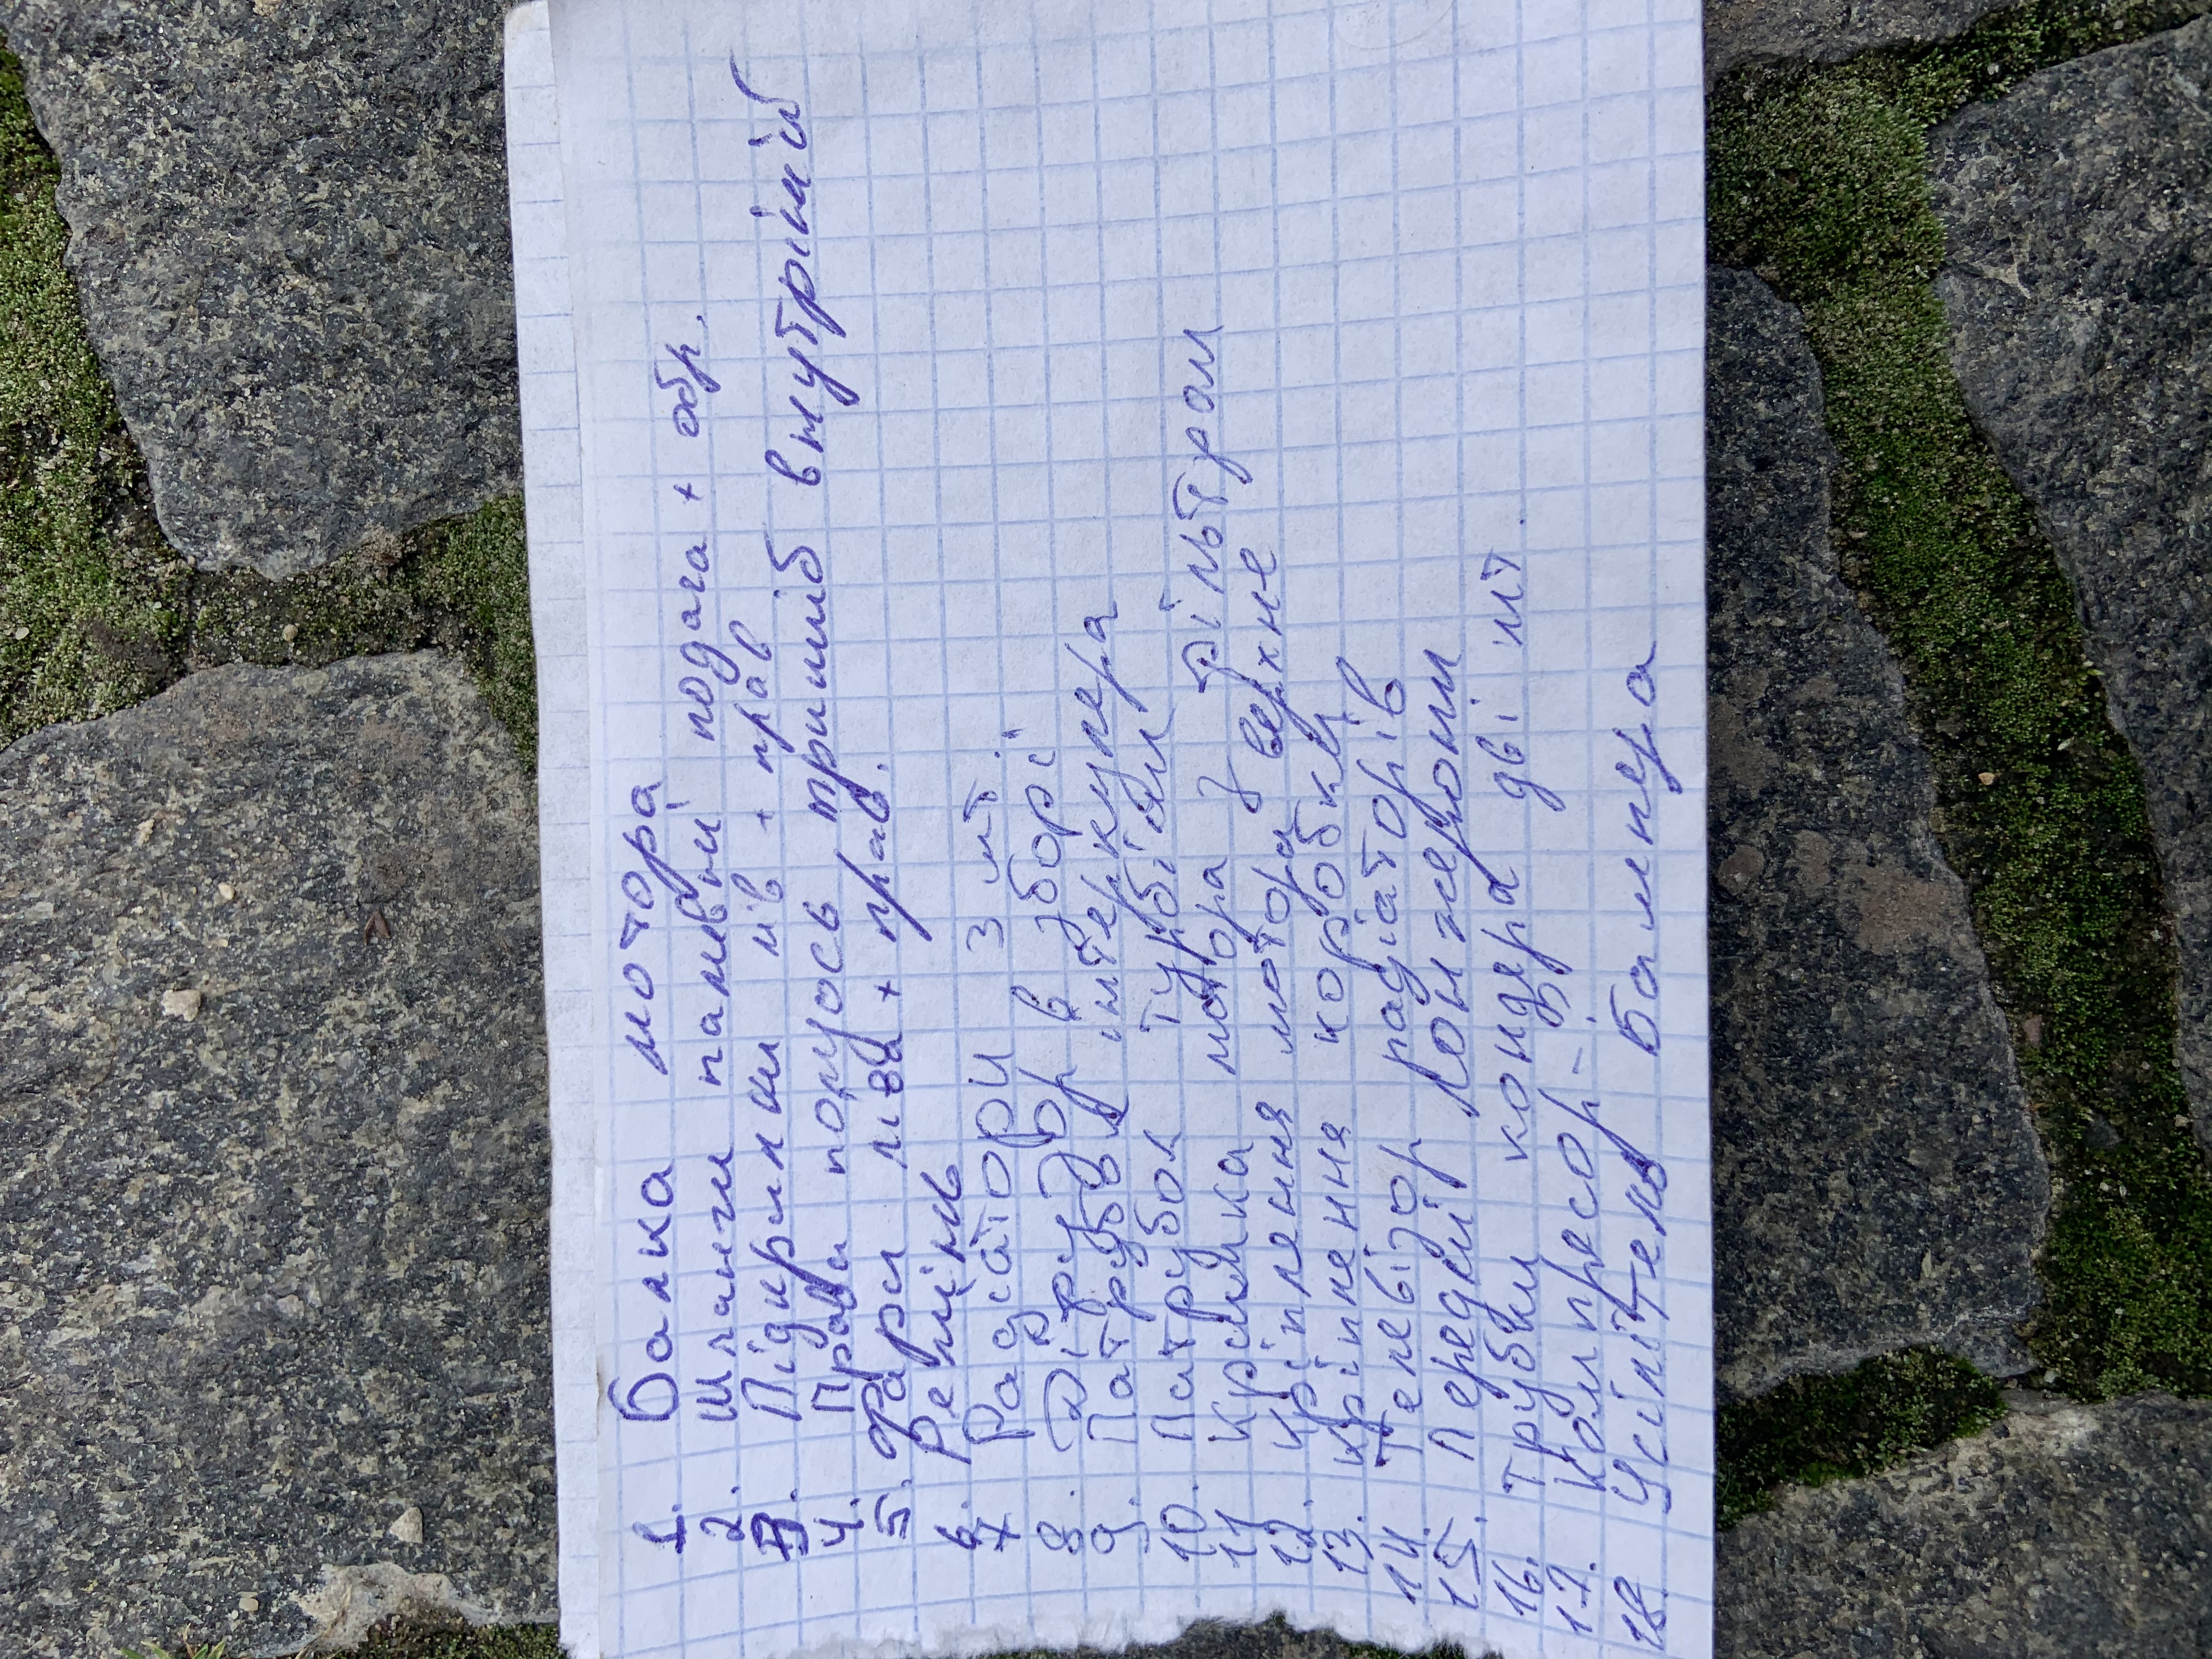 1. Балка мотора
2. Шланги паливні подача + обр.
3. Підкрилки лів + прав
4. Права полуось тришиб внутрішній
5. Фари ліва + прав.
6. Ремінь
7. Радіатори 3 шт
8. Діфузор в зборі
9. Патрубок інтеркулера
10. Патрубок турбіни
11 Кришка мотора з фільтром
12. Кріплення мотора верхнє
13. Кріплення коробки
14. Телевізор радіаторів
15. Передній лонжерони
16. Трубки кондера дві шт.
17. Компресор -"-
18. Усілітель бампера